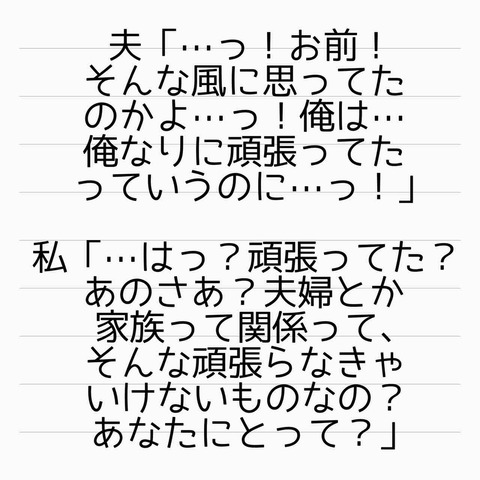 夫「…っ！お前！
そんな風に思ってた
のかよ…っ！俺は…
俺なりに頑張ってた
っていうのに…っ！」
私「…はっ？頑張ってた？
あのさあ？夫婦とか
家族って関係って、
そんな頑張らなきゃ
いけないものなの？
あなたにとって？」